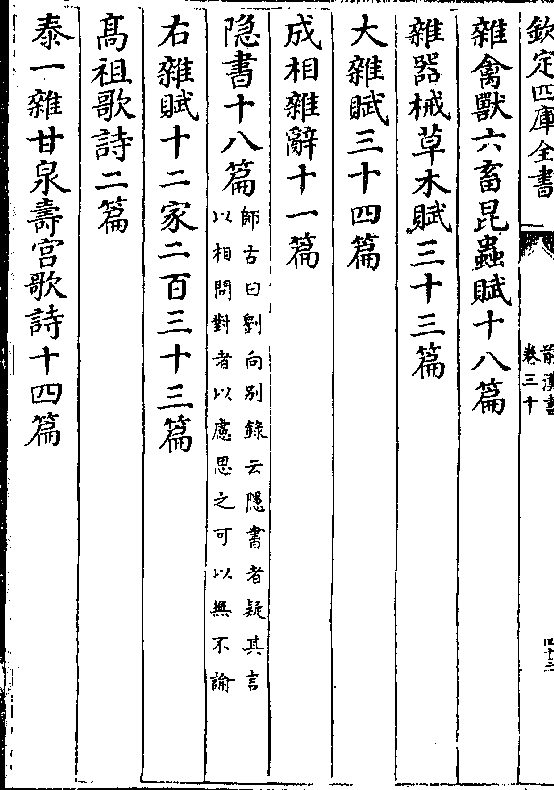 欽定四庫全書
前漢書
卷三十
四十三
雜禽獸六畜昆蟲賦十八篇
雜器械草木賦三十三篇
大雜賦三十四篇
成相雜辭十一篇
隱書十八篇師古曰劉向别錄云隱書者疑其言
以相問對者以慮思之可以無不諭
右雜賦十二家二百三十三篇
髙祖歌詩二篇
泰一雜甘泉壽宫歌詩十四篇